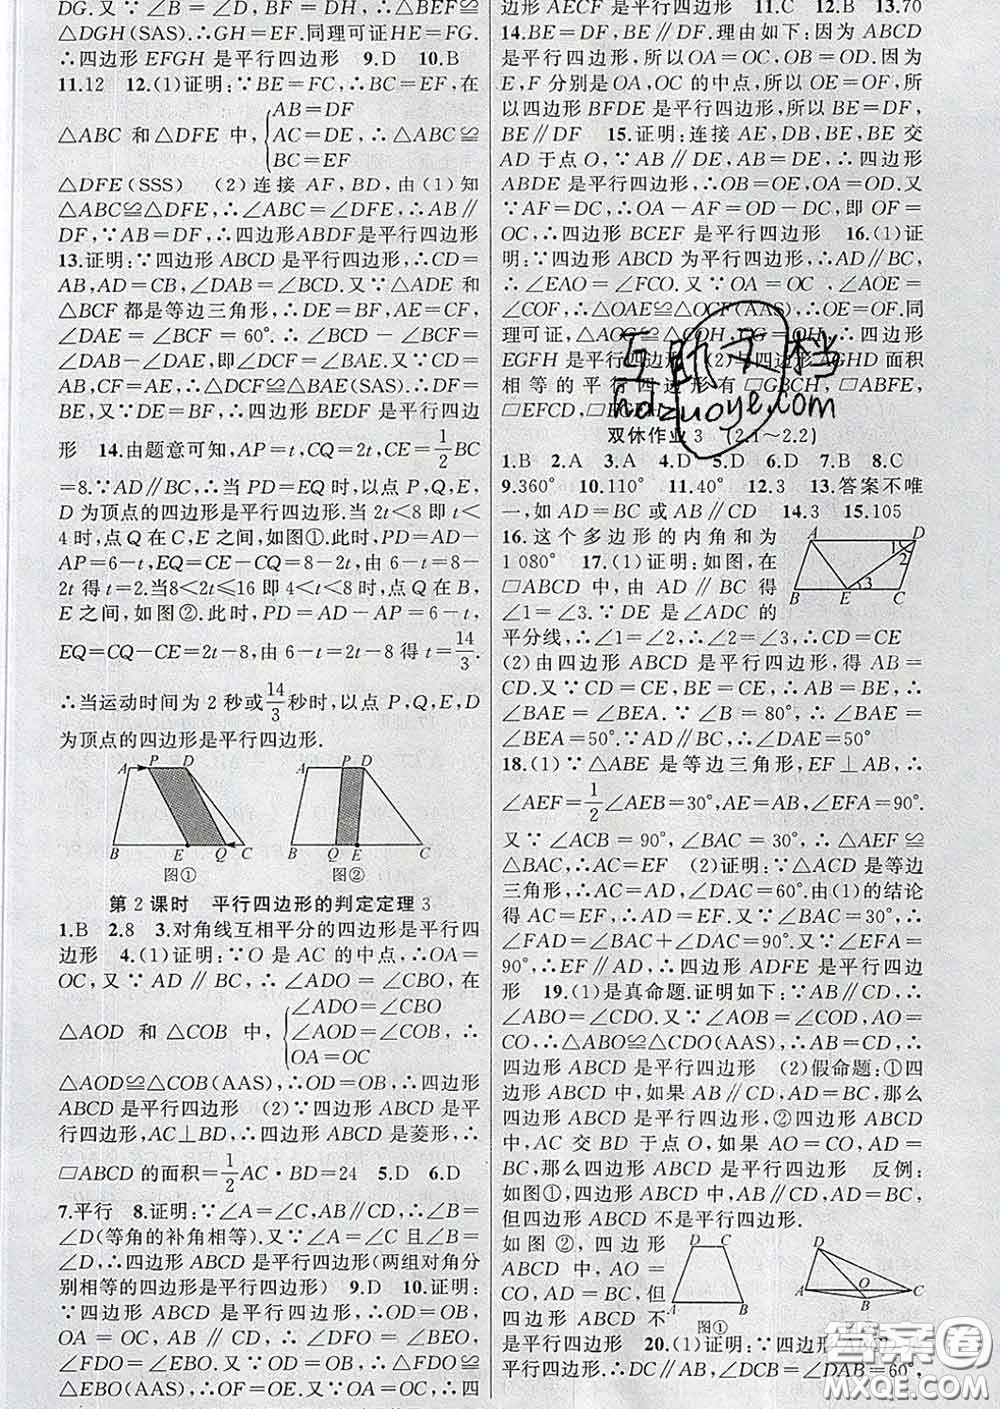 DG.又∵∠B=∠D,BF=DH,∴△BEF≌
△DGH(SAS).∴GH=EF.同理可证HE=FG.
∴四边形EFGH是平行四边形 9.D 10.B
11.12 12.(1)证明:∵BE=FC,∴BC=EF,在
△ABC和△DFE中,{AB=DF
AC=DE,∴△ABC≌
BC=EF
△DFE(SSS) (2)连接AF,BD,由(1)知
△ABC≌△DFE,∴∠ABC=∠DFE,∴AB∥
DF,∵AB=DF,∴四边形ABDF是平行四边形
13.证明:∵四边形ABCD是平行四边形,∴CD=
AB,AD=CB,∠DAB=∠BCD.又∵△ADE和
△BCF都是等边三角形,∴DE=BF,AE=CF,
∠DAE=∠BCF=60°.∴∠BCD-∠BCF=
∠DAB-∠DAE,即∠DCF=∠BAE.又∵CD=
AB,CF=AE,∴△DCF≌△BAE(SAS).∴DF=
BE,又∵DE=BF,∴四边形BEDF是平行四边
形 14.由题意可知,AP=t,CQ=2t,CE=1/2BC
=8.∵AD∥BC,∴当PD=EQ时,以点P,Q,E,
D为顶点的四边形是平行四边形.当2t<8即t<
4时,点Q在C,E之间,如图①.此时,PD=AD-
AP=6-t,EQ=CE-CQ=8-2t,由6-t=8-2t
得t=2.当8<2t≤16即4<t<8时,点Q在B,
E之间,如图②.此时,PD=AD-AP=6-t,
EQ=CQ-CE=2t-8,由6-t=2t-8得t=14/3.
∴当运动时间为2秒或14/3秒时,以点P,Q,E,D
为顶点的四边形是平行四边形.
A P D
B E Q C
图①
A P D
B Q E C
图②
第2课时 平行四边形的判定定理3
1.B 2.8 3.对角线互相平分的四边形是平行四
边形 4.(1)证明:∵O是AC的中点,∴OA=
OC,又∵AD∥BC,∴∠ADO=∠CBO,在
△AOD和△COB中,{∠ADO=∠CBO
∠AOD=∠COB,∴
OA=OC
△AOD≌△COB(AAS),∴OD=OB,∴四边形
ABCD是平行四边形 (2)∵四边形ABCD是平
行四边形,AC⊥BD,∴四边形ABCD是菱形,∴
▱ABCD的面积=1/2AC·BD=24 5.D 6.D
7.平行 8.证明:∵∠A=∠C,AB∥CD,∴∠B=
∠D(等角的补角相等).又∵∠A=∠C且∠B=
∠D,∴四边形ABCD是平行四边形(两组对角分
别相等的四边形是平行四边形) 9.D 10.证明:
∵四边形ABCD是平行四边形,∴OD=OB,
OA=OC,AB∥CD,∴∠DFO=∠BEO,
∠FDO=∠EBO.又∵OD=OB,∴△FDO≌
△EBO(AAS),∴OF=OE.又∵OA=OC,∴四
边形AECF是平行四边形 11.C 12.B 13.70
14.BE=DF,BE∥DF.理由如下:因为ABCD
是平行四边形,所以OA=OC,OB=OD.因为
E,F分别是OA,OC的中点,所以OE=OF,所
以四边形BFDE是平行四边形,所以BE=DF,
BE∥DF 15.证明:连接AE,DB,BE,BE交
AD于点O,∵AB∥DE,AB=DE,∴四边形
ABDE是平行四边形,∴OB=OE,OA=OD.又
∵AF=DC,∴OA-AF=OD-DC,即OF=
OC,∴四边形BCEF是平行四边形 16.(1)证
明:∵四边形ABCD为平行四边形,∴AD∥BC,
∴∠EAO=∠FCO.又∵OA=OC,∠AOE=
∠COF,∴△OAE≌△OCF(ASA),∴OE=OF.同
理可证,△AOG≌△COH,OG=OH,∴四边形
EGFH是平行四边形 (2)与四边形AGHD面积
相等的平行四边形有▱GBCH,▱ABFE,
▱EFCD,▱EGFH
双休作业3 (2.1~2.2)
1.B 2.A 3.A 4.D 5.D 6.D 7.B 8.C
9.360° 10.110° 11.40° 12.3 13.答案不唯
一,如AD=BC或AB∥CD 14.3 15.105
16.这个多边形的内角和为
1 080° 17.(1)证明:如图,在
▱ABCD中,由AD∥BC得
∠1=∠3.∵DE是∠ADC的
平分线,∴∠1=∠2,∴∠2=∠3,∴CD=CE
A D 1 2 3
B E C
(2)由四边形ABCD是平行四边形,得AB=
CD.又∵CD=CE,BE=CE,∴AB=BE,∴
∠BAE=∠BEA.∵∠B=80°,∴∠BAE=
∠BEA=50°.∵AD∥BC,∴∠DAE=50°
18.(1)∵△ABE是等边三角形,EF⊥AB,∴
∠AEF=1/2∠AEB=30°,AE=AB,∠EFA=90°.
又∵∠ACB=90°,∠BAC=30°,∴△AEF≌
△BAC,∴AC=EF (2)证明:∵△ACD是等边
三角形,∴AC=AD,∠DAC=60°.由(1)的结论
得AC=EF,∴AD=EF.∵∠BAC=30°,∴
∠FAD=∠BAC+∠DAC=90°.又∵∠EFA=
90°,∴EF∥AD,∴四边形ADFE是平行四边
形 19.(1)是真命题.证明如下:∵AB∥CD,∴
∠ABO=∠CDO.又∵∠AOB=∠COD,AO=
CO,∴△ABO≌△CDO(AAS).∴AB=CD,∴
四边形ABCD是平行四边形 (2)假命题:①四
边形ABCD中,如果AB∥CD,AD=BC,那么
四边形ABCD是平行四边形,②四边形ABCD
中,AC交BD于点O,如果AO=CO,AD=
BC,那么四边形ABCD是平行四边形 反例:
如图①,四边形ABCD中,AB∥CD,AD=BC,
但四边形ABCD不是平行四边形.
如图②,四边形
ABCD中,AO=
CO,AD=BC,但
四边形ABCD不
是平行四边形 20.(1)证明:∵四边形
平行四边形.∴DC∥AB,∠DCB=∠DAB=60°,
D C
A B
图①
D
A O C
B
互助文档
hdzuoye.com
答案圈
MXQE.COM